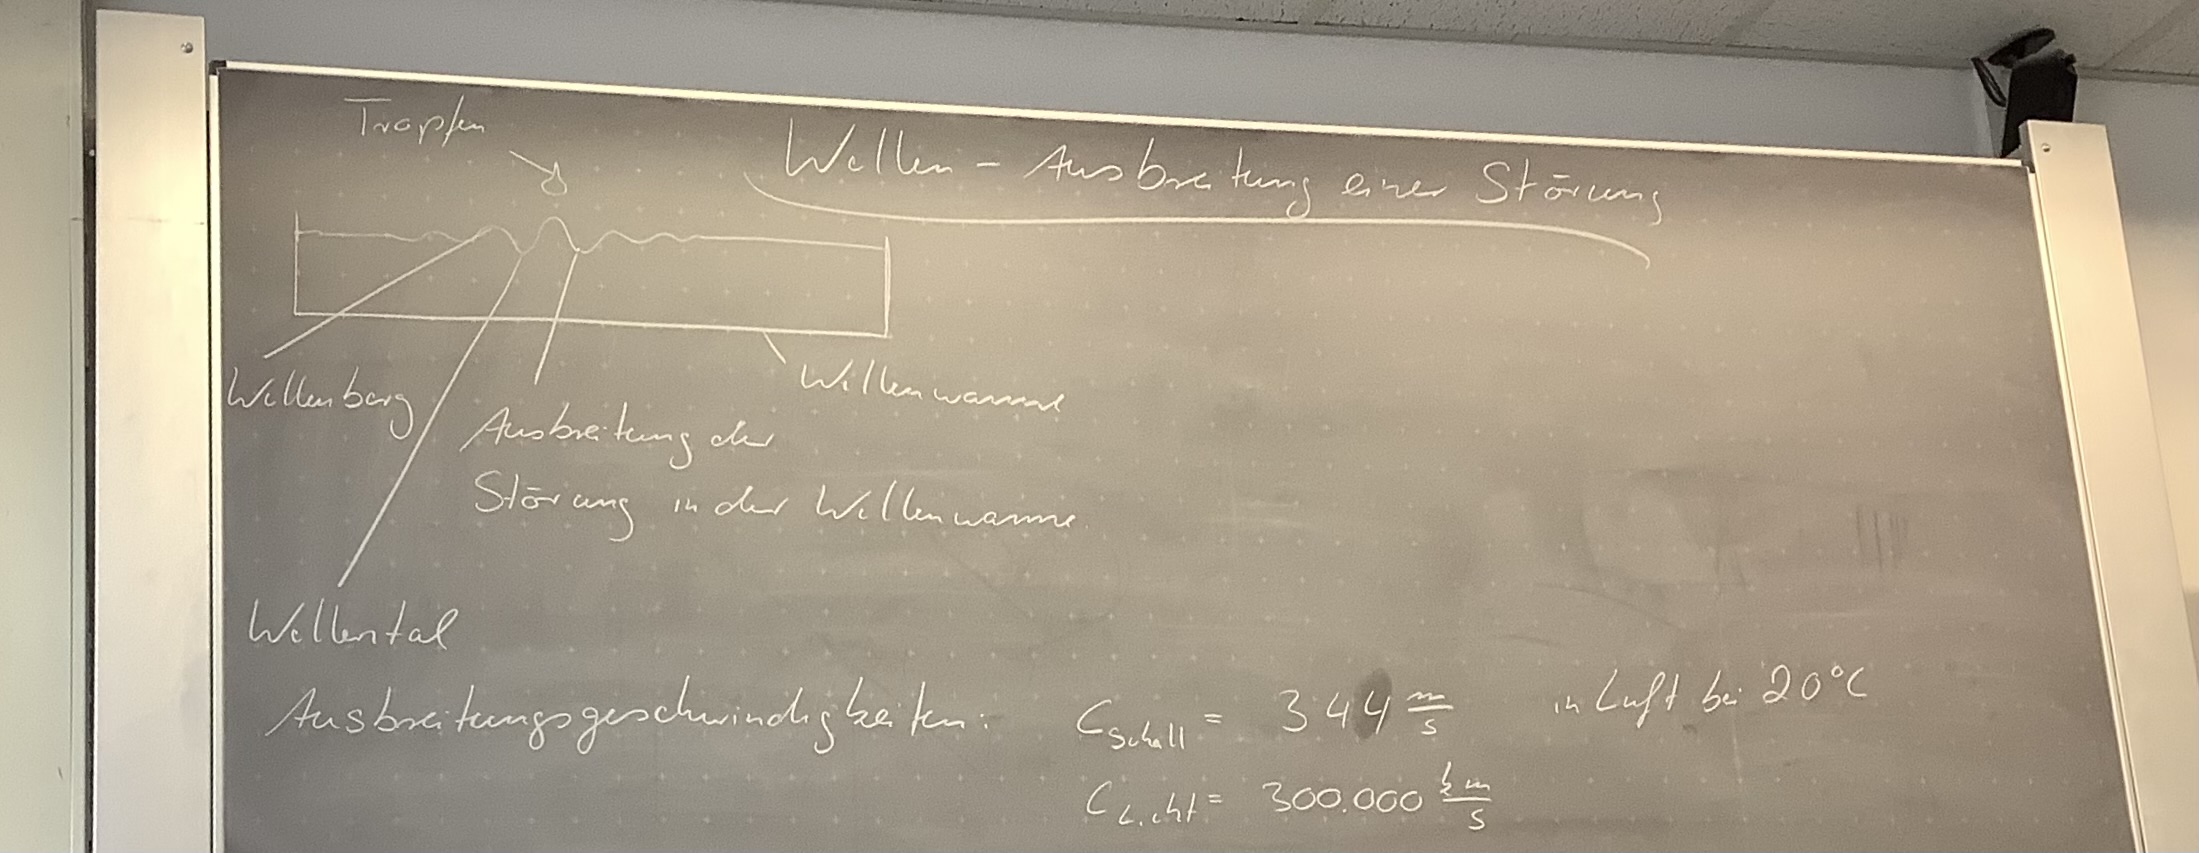 Tropfen
Wellen - Ausbreitung einer Störung
Wellenberg
Wellenwanne
Ausbreitung der
Störung in der Wellenwanne.
Wellental
Ausbreitungsgeschwindigkeiten: C Schall = 344 m/s in Luft bei 20°C
C Licht = 300.000 km/s